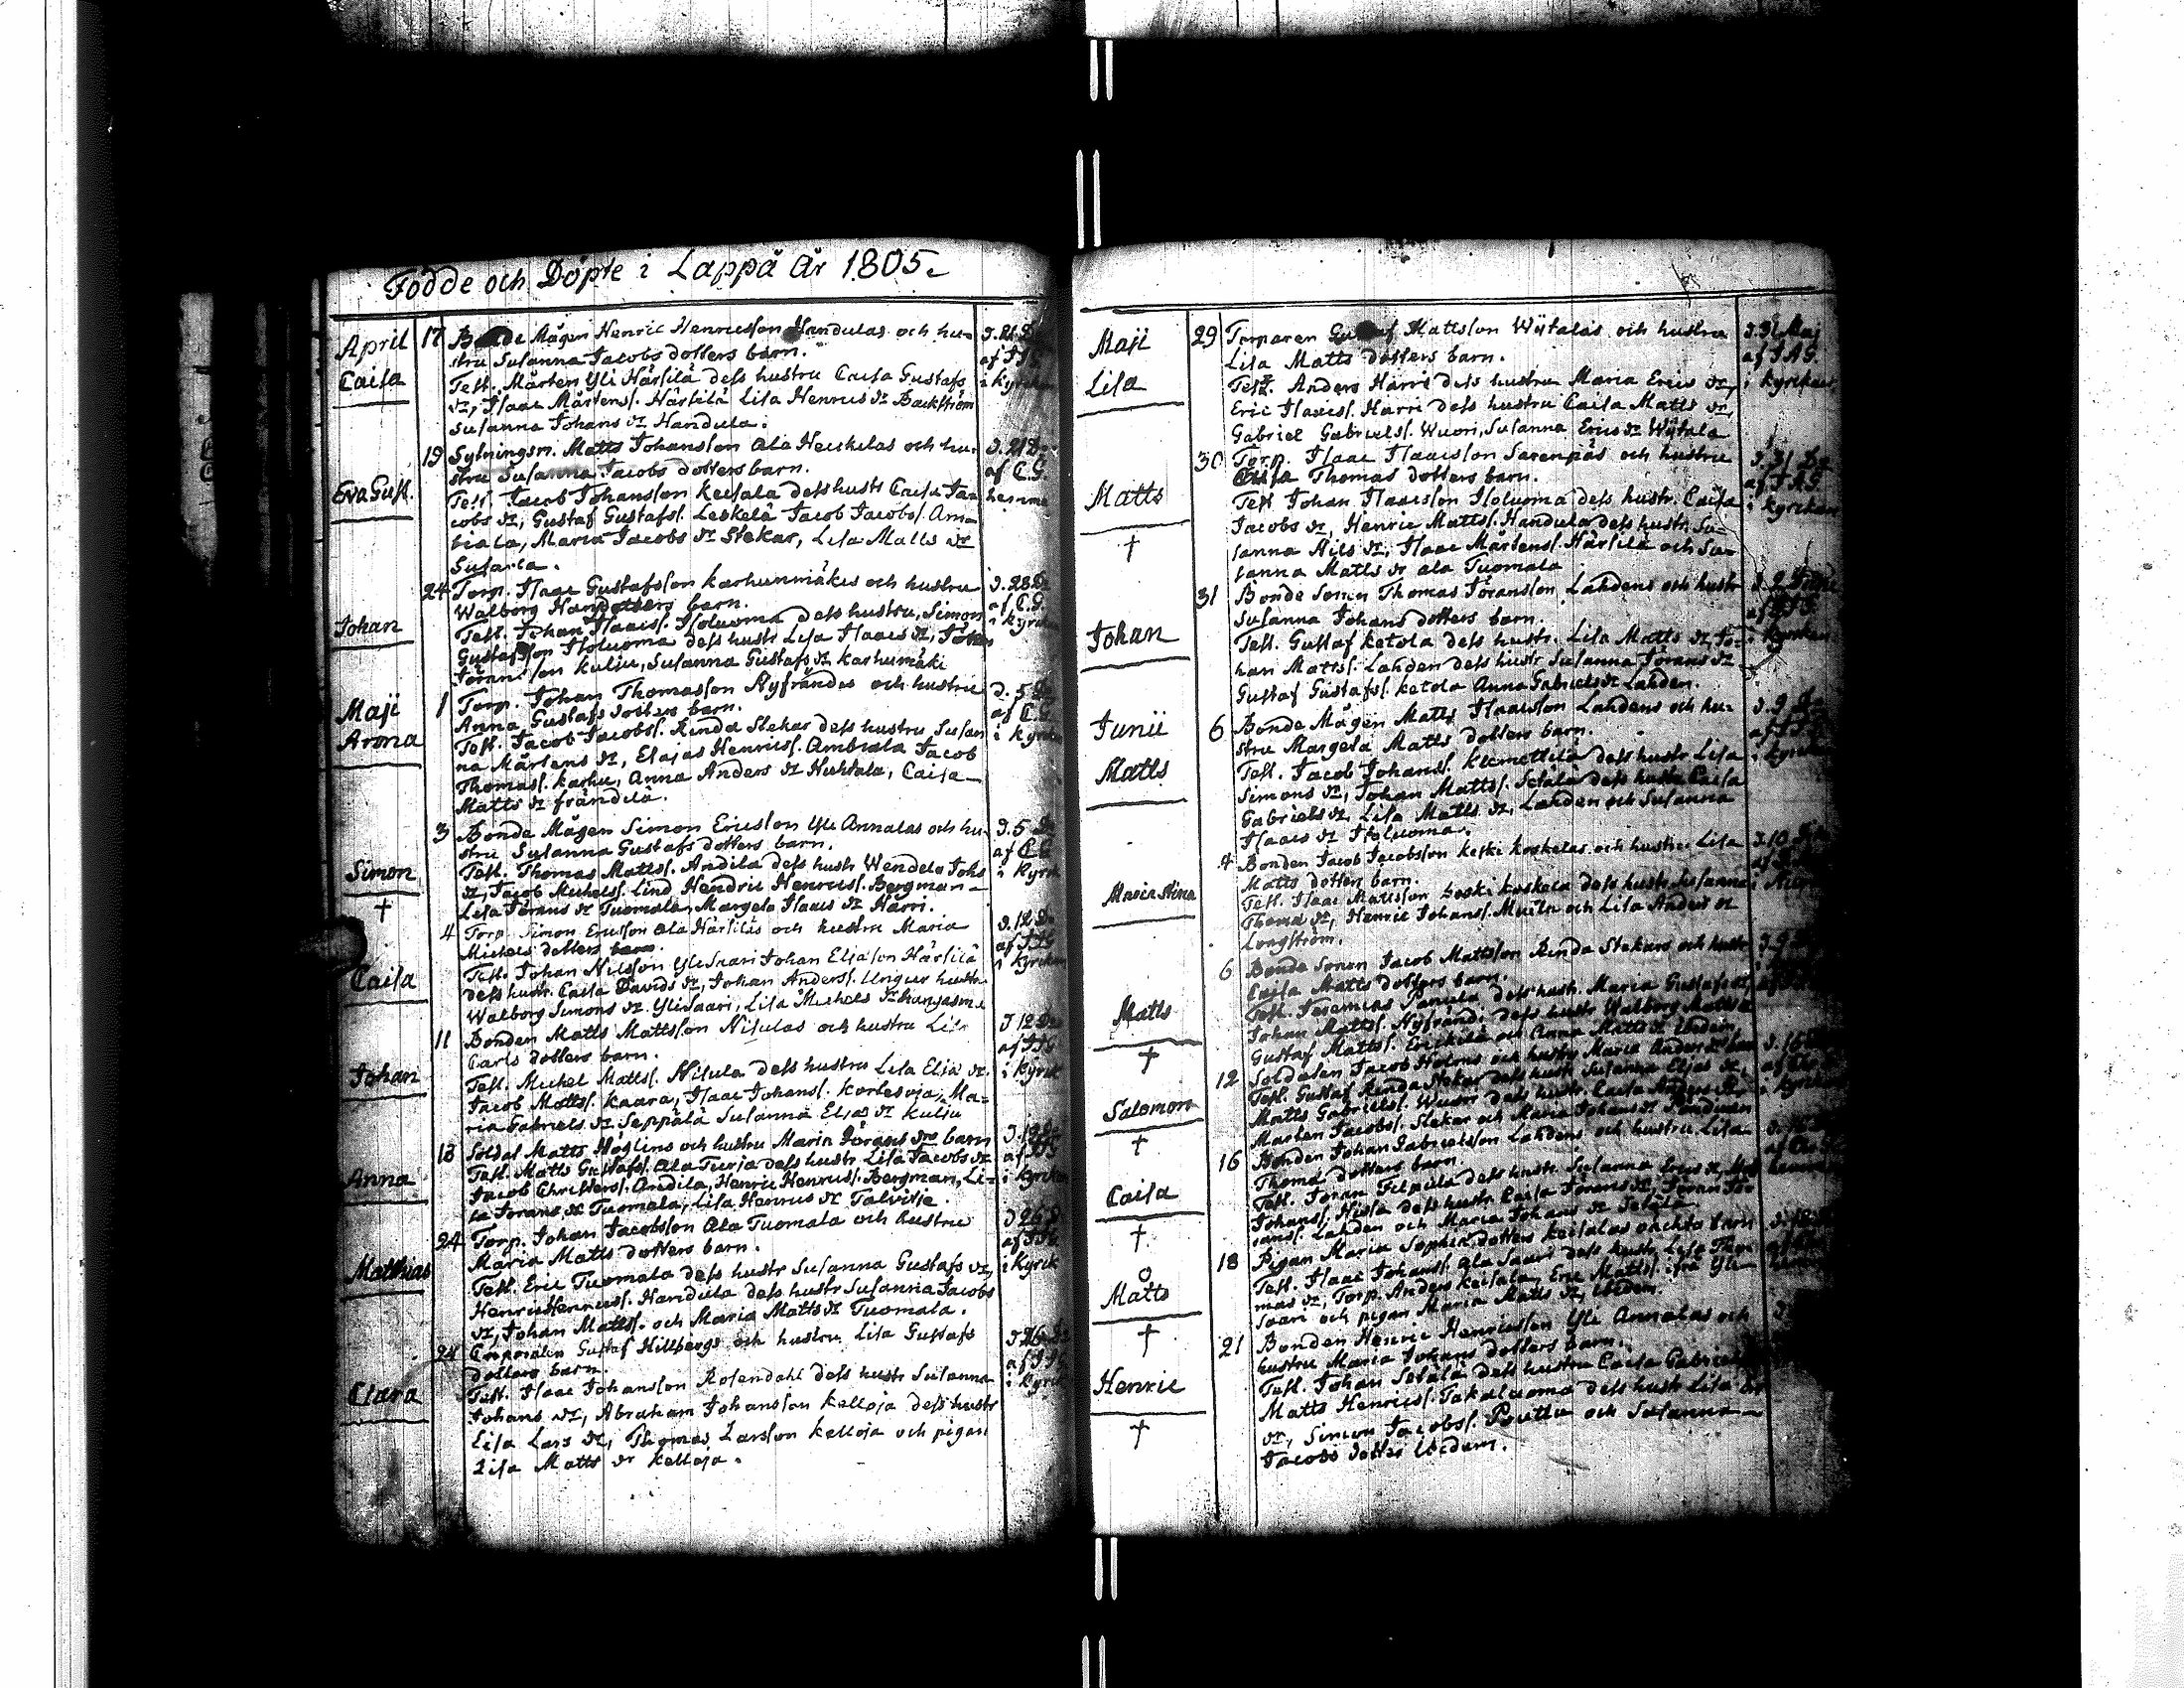 Födde och Döpte i Lappå År 1805.
April 17 Bonde Mågen Henric Henricsson Handulas och hu-
stru Susanna Jacobs dotters barn. d. 21 D:o
Caisa Test. Mårten Yli Härsilä dess hustru Caisa Gustafs af
dr, Isaac Mårtenss. Härsilä Lisa Henrics dr Backström i Kyrkan
Susanna Johans dr Handula.
19 Sytningsm. Matts Johansson Ala Heickelas och hu- d. 21 D:o
stru Susanna Jacobs dotters barn. af C.G.
Eva Gust. Test. Jacob Johansson Keisala dess hustr Caisa Ja- hemma
cobs dr, Gustaf Gustafss. Leskelä Jacob Jacobss. Am-
biala, Maria Jacobs dr Stekar, Lisa Matts dr
24 Torp. Isaac Gustafsson Karhunmäkis och hustru d. 28 D:o
Walborg Hans dotters barn. af C.G.
Johan Test. Johan Isaacs. Isoluoma dess hustru, Simon i Kyrkan
Gustafsson Isoluoma dess hustr Lisa Isaacs dr, Johan
Göransson Kulju, Susanna Gustafs dr Karhumäki
Maji 1 Torp. Johan Thomasson Nyfrändis och hustru d. 5 D:o
Anna Gustafs dotters barn. af C.G.
Anna Test. Jacob Jacobss. Rinda Stekar dess hustru Susan i Kyrkan
na Mårtens dr, Elajas Henricss. Ambiala Jacob
Thomass. Karhu, Anna Anders dr Huhtala, Caisa
Matts dr Frändilä.
3 Bonde Mågen Simon Ericsson Yli Annalas och hu- d. 5 D:o
stru Susanna Gustafs dotters barn. af C.G.
Simon Test. Thomas Mattss. Andila dess hustr Wendela Johs i Kyrk
dr, Jacob Michelss. Lind Hendric Henricss. Bergman
† Lisa Görans dr Tuomala, Margeta Isaacs dr Harri.
4 Torp. Simon Ericsson Ala Härsiläs och hustru Maria d. 12 D:o
Michels dotters barn. af
Caisa Test. Johan Nilsson Yli Saari Johan Eliasson Härsilä i Kyrkan
dess hustr. Caisa Davids dr, Johan Anderss. Ungur hustru
Walborg Simons dr. Yli Saari, Lisa Michels dr
11 Bonden Matts Mattsson Nisulas och hustru Lisa d 12 D:o
Carls dotters barn. af
Johan Test. Michel Mattss. Nisula dess hustru Lisa Elia dr. i Kyrk
Jacob Mattss. Kaara, Isaac Johanss. Kortesoja, Ma-
ria Gabriels dr Seppälä Susanna Elias dr Kulju
13 Soldat Matts Höglins och hustru Maria Görans drs barn
Anna Test. Matts Gustafss. Ala Turja dess hustr Lisa Jacobs dr af
Jacob Christerss. Andila, Henric Henricss. Bergman, Li- i Kyrkan
sa Görans dr Tuomala, Lisa Henrics dr Talvitje.
24 Torp. Johan Jacobsson Ala Tuomala och hustru d 26 D
Maria Matts dotters barn. af
Matthias Test. Eric Tuomala dess hustr Susanna Gustafs dr, i Kyrk
Henric Henricss. Handula dess hustr Susanna Jacobs
dr, Johan Mattss. och Maria Matts dr Tuomala.
24 Corporalen Gustaf Hillbergs och hustru Lisa Gustafs d 26
dotters barn. af
Clara Test. Isaac Johansson Rosendahl dess hustr Susanna i Kyrk
Johans dr, Abraham Johansson Kelloja dess hustr
Lisa Lars dr, Thomas Larsson Kelloja och pigan
Lisa Matts dr Kelloja.
Maji 29 Torparen Gustaf Mattsson Wÿtalas och hustru d. 31 Maj
Lisa Matts dotters barn. af J.A.G.
Lisa Test. Anders Harri dess hustru Maria Erics dr, i Kyrkan
Eric Isaacss. Harri dess hustru Caisa Matts dr,
Gabriel Gabrielss. Wuori, Susanna Erics dr Wÿtala
30 Torp. Isaac Isaacsson Sarenpäs och hustru d. 31 D:o
Caisa Thomas dotters barn. af J.A.G.
Matts Test Johan Isaacsson Isoluoma dess hustr. Caisa i Kyrkan
Jacobs dr, Henric Mattss. Handula dess hustr. Su-
† sanna Nils dr, Isaac Mårtenss. Härsilä och Su-
sanna Matts dr Ala Tuomala
31 Bonde Sonen Thomas Göransson Lahdens och hustr
Susanna Johans dotters barn.
Johan Test. Gustaf Ketola dess hustr. Lisa Matts dr, Jo- Kyrkan
han Mattss. Lahden dess hustr Susanna Görans dr
Gustaf Gustafss. Ketola Anna Gabriels dr Lahden.
Junii 6 Bonde Mågen Matts Isaacsson Lahdens och hu- d. 9
stru Margeta Matts dotters barn.
Matts Test. Jacob Johanss. dess hustr Lisa i Kyrkan
Simons dr, Johan Mattss. Setälä dess hustr Caisa
Gabriels dr, Lisa Matts dr, Lahden och Susanna
Isaacs dr Isoluoma.
4 Bonden Jacob Jacobsson Keski Koskelas och hustru Lisa d. 10
Matts dotters barn.
Maria Stina Test. Isaac Mattsson Koski Koskela dess hustr Susanna
Thoma dr, Henric Johanss. och Lisa Anders dr
Longström.
6 Bonde Sonen Jacob Mattsson Rinda Stekars och hustr
Caisa Matts dotters barn.
Matts Test. Jeremias Panula dess hustr. Maria Gustafs dr,
Johan Mattss. Nyfrändi dess hustr Walborg Matts dr
† Gustaf Mattss. och Anna Matts dr ibidem.
12 Soldaten Jacob Holms och hustru Maria Anders
Salomon Test. Gustaf Rinda Stekar dess hustr Susanna Eljas dr,
Matts Gabrielss. Wuori dess hustr. Caisa Anders dr
† Marten Jacobss. Stekar och Maria Johans dr
16 Bonden Johan Gabrielsson Lahdens och hustru Lisa
Thoma dotters barn.
Caisa Test. Göran Filpula dess hustr. Susanna Erics dr,
Johanss. Hissa dess hustr Caisa Görans dr, Göran Gö-
† ranss. Lahden och Maria Johans dr Setälä.
18 Pigan Maria Sophia dotters Keisalas oächta barn
Matts Test. Isaac Johanss. Ala Saari dess hustr Lisa Tho-
mas dr, Torp. Anders Keisala, Eric Mattss. ifrå Yli-
† saari och pigan Maria Matts dr, ibidem.
21 Bonden Henric Henricsson Yli Annalas och
hustru Maria Johans dotters barn.
Henric Test. Johan Setälä dess hustru Caisa Gabriels
Matts Henricss. Takaluoma dess hustr Lisa
† dr, Simon Jacobss. Pouttu och Susanna
Jacobs dotter ibidem.